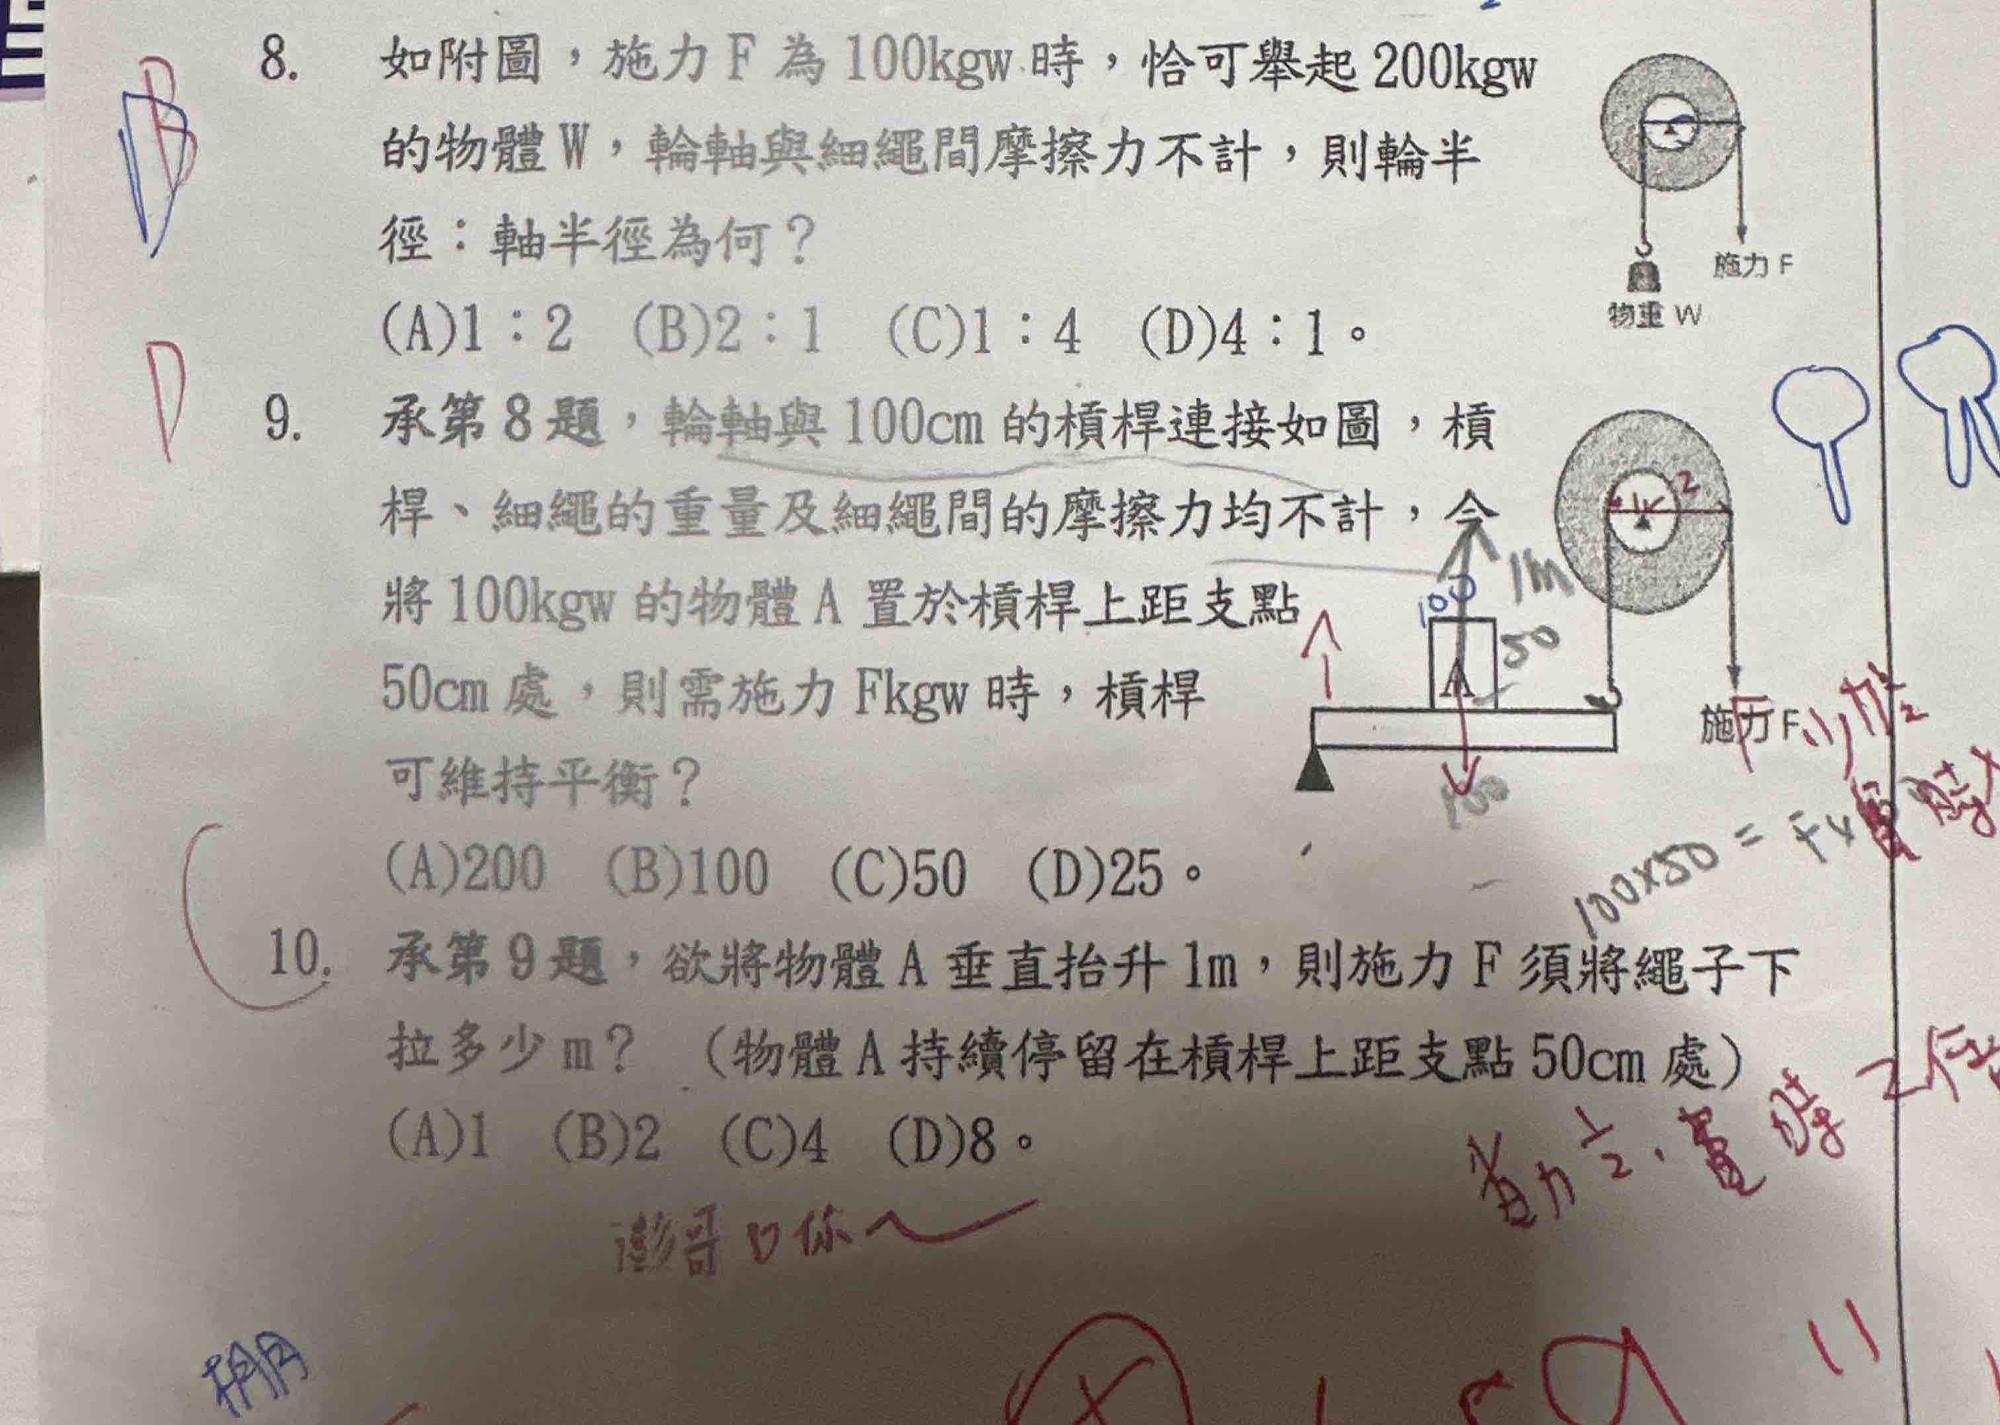 8. 如附圖，施力 F 為 100kgw 時，恰可舉起 200kgw
的物體 W，輪軸與細繩間摩擦力不計，則輪半
徑：軸半徑為何？
(A)1：2 (B)2：1 (C)1：4 (D)4：1。
施力 F
物重 W
B
D
9. 承第 8 題，輪軸與 100cm 的槓桿連接如圖，槓
桿、細繩的重量及細繩間的摩擦力均不計，今
將 100kgw 的物體 A 置於槓桿上距支點
50cm 處，則需施力 Fkgw 時，槓桿
可維持平衡？
(A)200 (B)100 (C)50 (D)25。
2
1m
100
50
A
施力 F
100
100×50 = F×
10. 承第 9 題，欲將物體 A 垂直抬升 1m，則施力 F 須將繩子下
拉多少 m？ （物體 A 持續停留在槓桿上距支點 50cm 處）
(A)1 (B)2 (C)4 (D)8。
省力 1/2